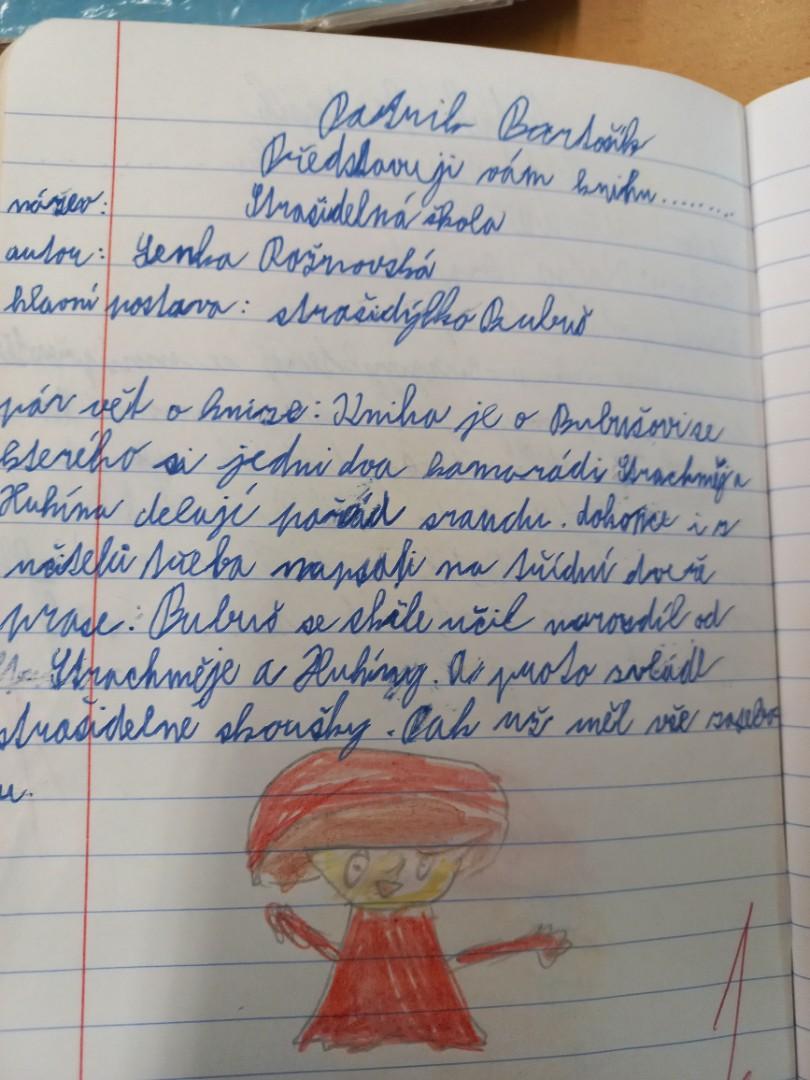 Patrik Bartošík
Představuji vám knihu........
název: Strašidelná škola
autor: Lenka Rožnovská
hlavní postava: strašidýlko Bubuš
pár vět o knize: Kniha je o Bubušovi ze
kterého si jedni dva kamarádi Strachměj a
Huhína delají pořád srandu. dokonce i z
učitelů třeba napsali na třídní dveře
prase. Bubuš se stále učil narozdíl od
Strachměje a Huhíny. A proto zvládl
strašidelné zkoušky. Pak už měl vše zasebo
u.
1